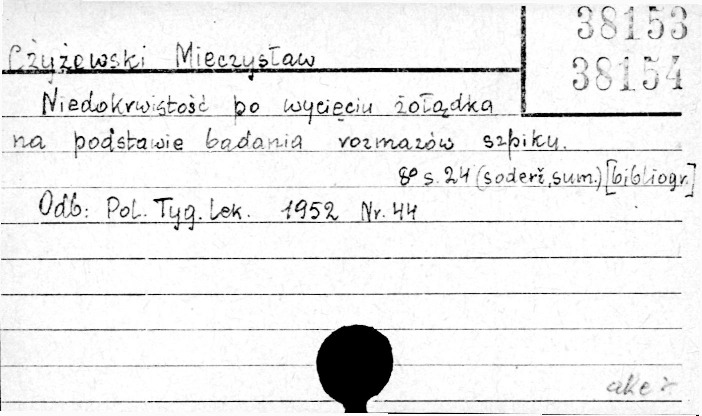 38153
Czyżewski Mieczysław
38154
Niedokrwistość po wycięciu żołądka
na podstawie badania rozmazów szpiku.
8° s. 24 (soderž, sum.) [bibliogr.]
Odb: Pol. Tyg. Lek. 1952 Nr. 44